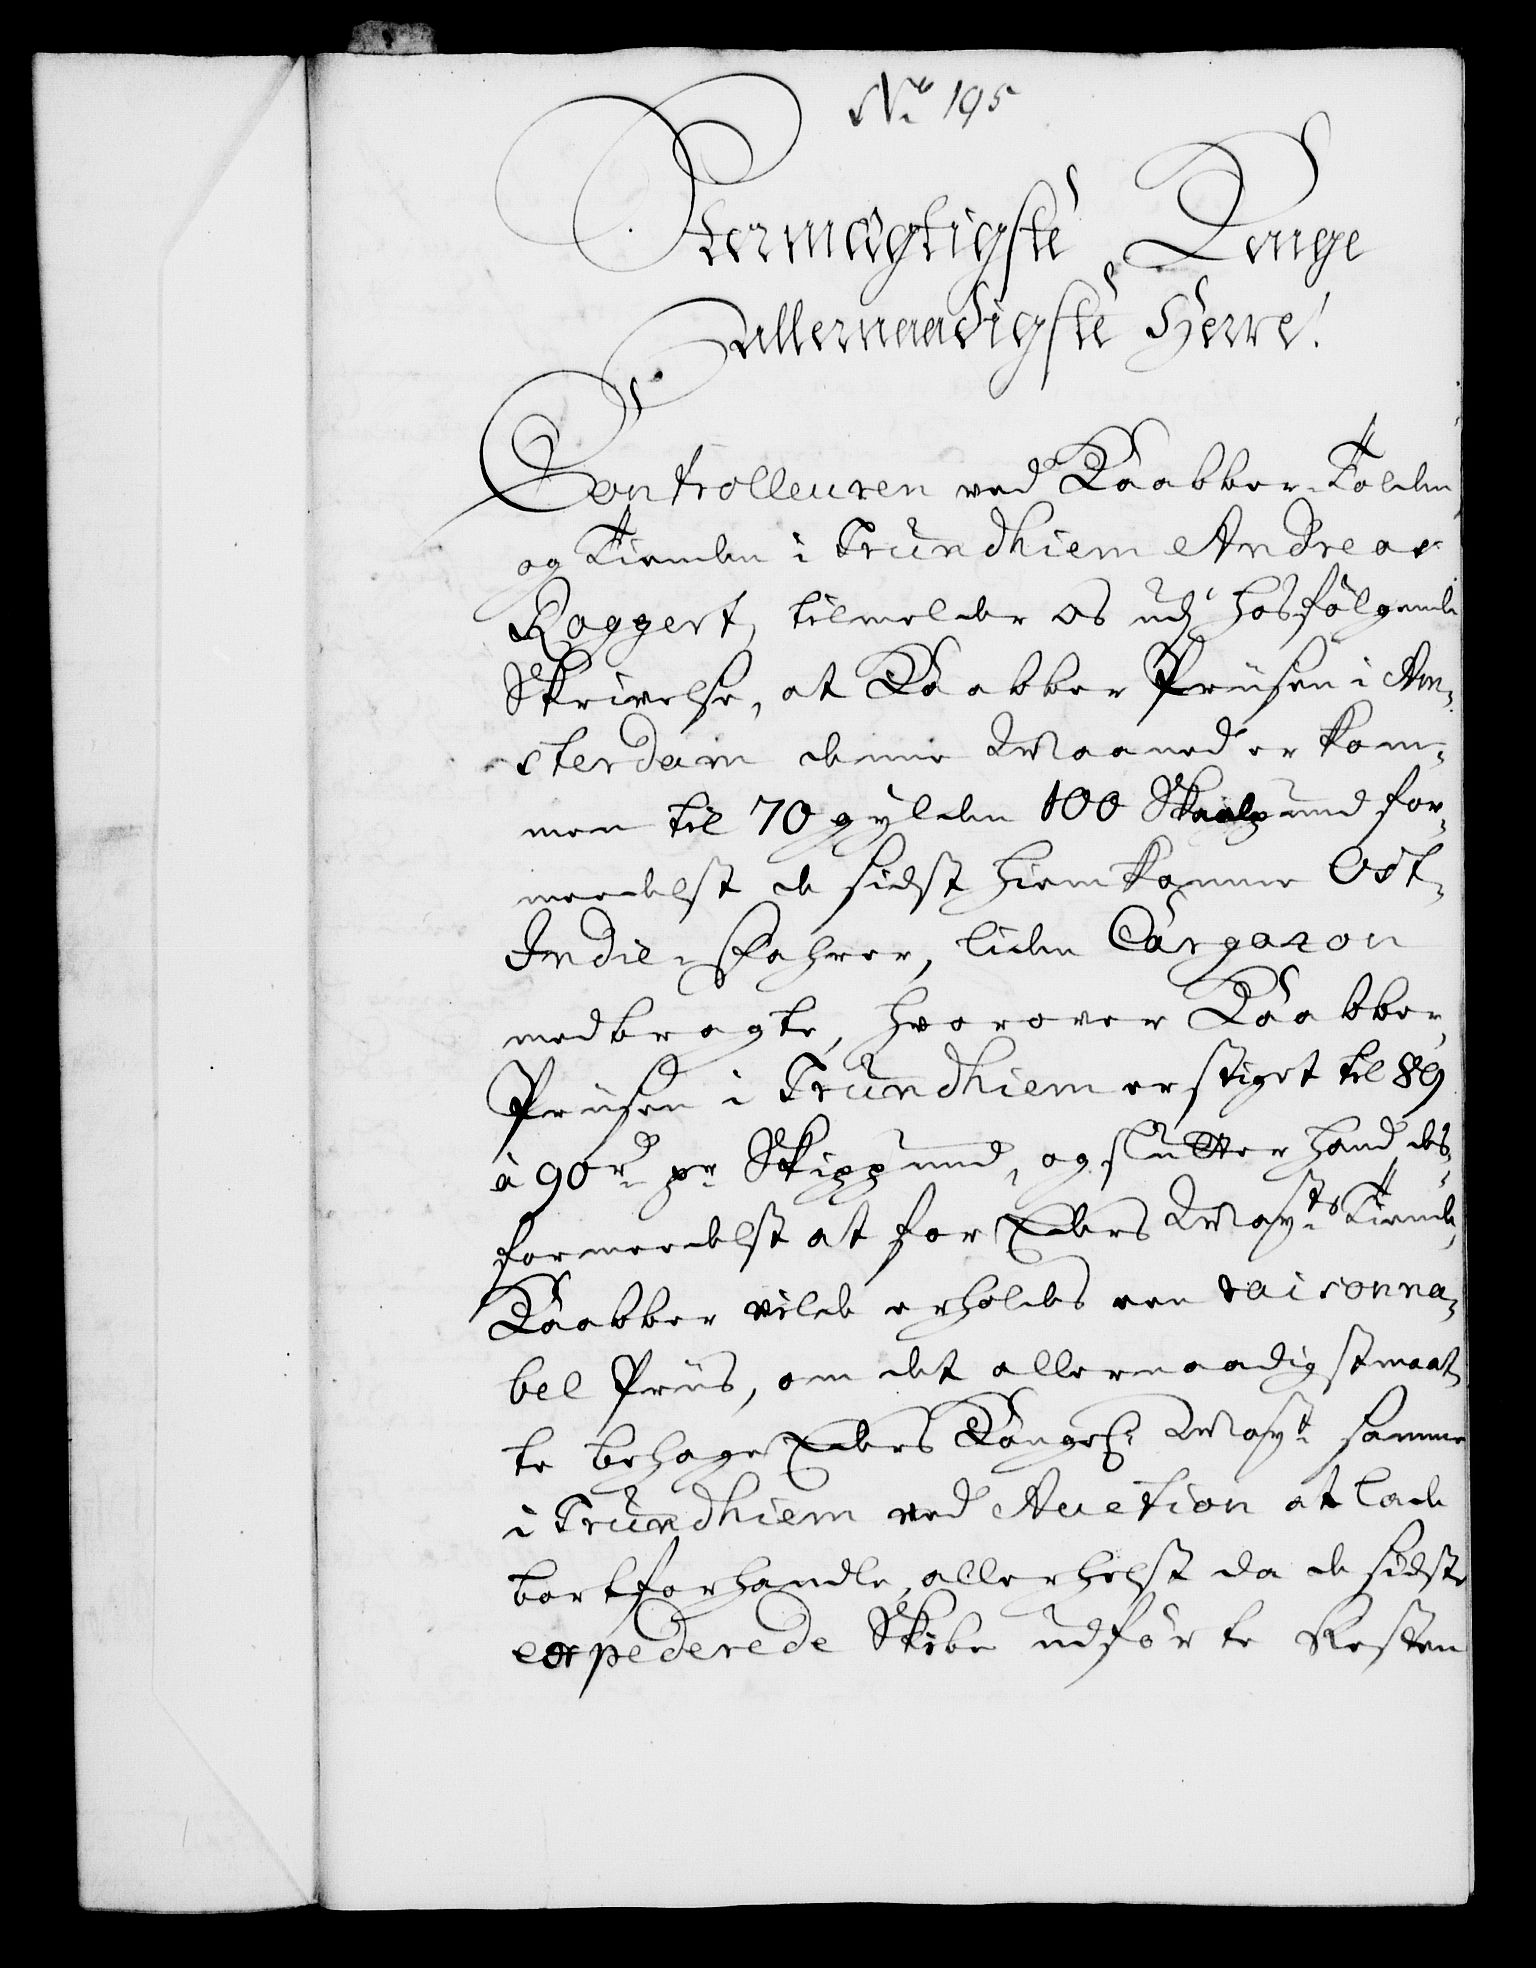 No 195
Stormægtigste Konge
allernaadigste Herre!
Controlleuren ved Kaabber-Tolden
og Tienden i Trundhiem Andreas
Roggert, tilmelder os udj hosfølgende
Skrivelse, at Kaabber Priisen i Am-
sterdam denne Maaned er kom-
men til 70 gylden 100 Skaalpund for-
meedelst de sidst hiemkomne Ost-
Indie-Fahrer, liden Cargazon
medbragte, hvorover Kaabber
Priisen i Trundhiem er stiget til 89
à 90 rd pr Skippund, og slutter hand des-
formeedelst at for Eders Mayts Tiende
Kaabber vilde erholdes een raisonna-
bel Priis, om det allernaadigst maat-
te behage Eders Kongel. Mayt samme
i Trundhiem ved Auction at lade
bortforhandle, allerhelst da de sidste
expederede Skibe udførte Resten